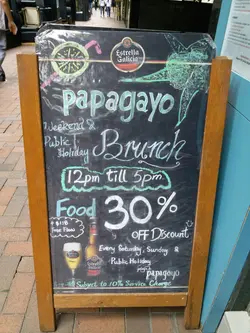 Estrella
Galicia
papagayo
Weekend &
Public
Holiday
Brunch
12pm till 5pm
Food 30%
OFF Discount
Every Saturday, Sunday &
Public Holiday
papagayo
Subject to 10% Service Charge